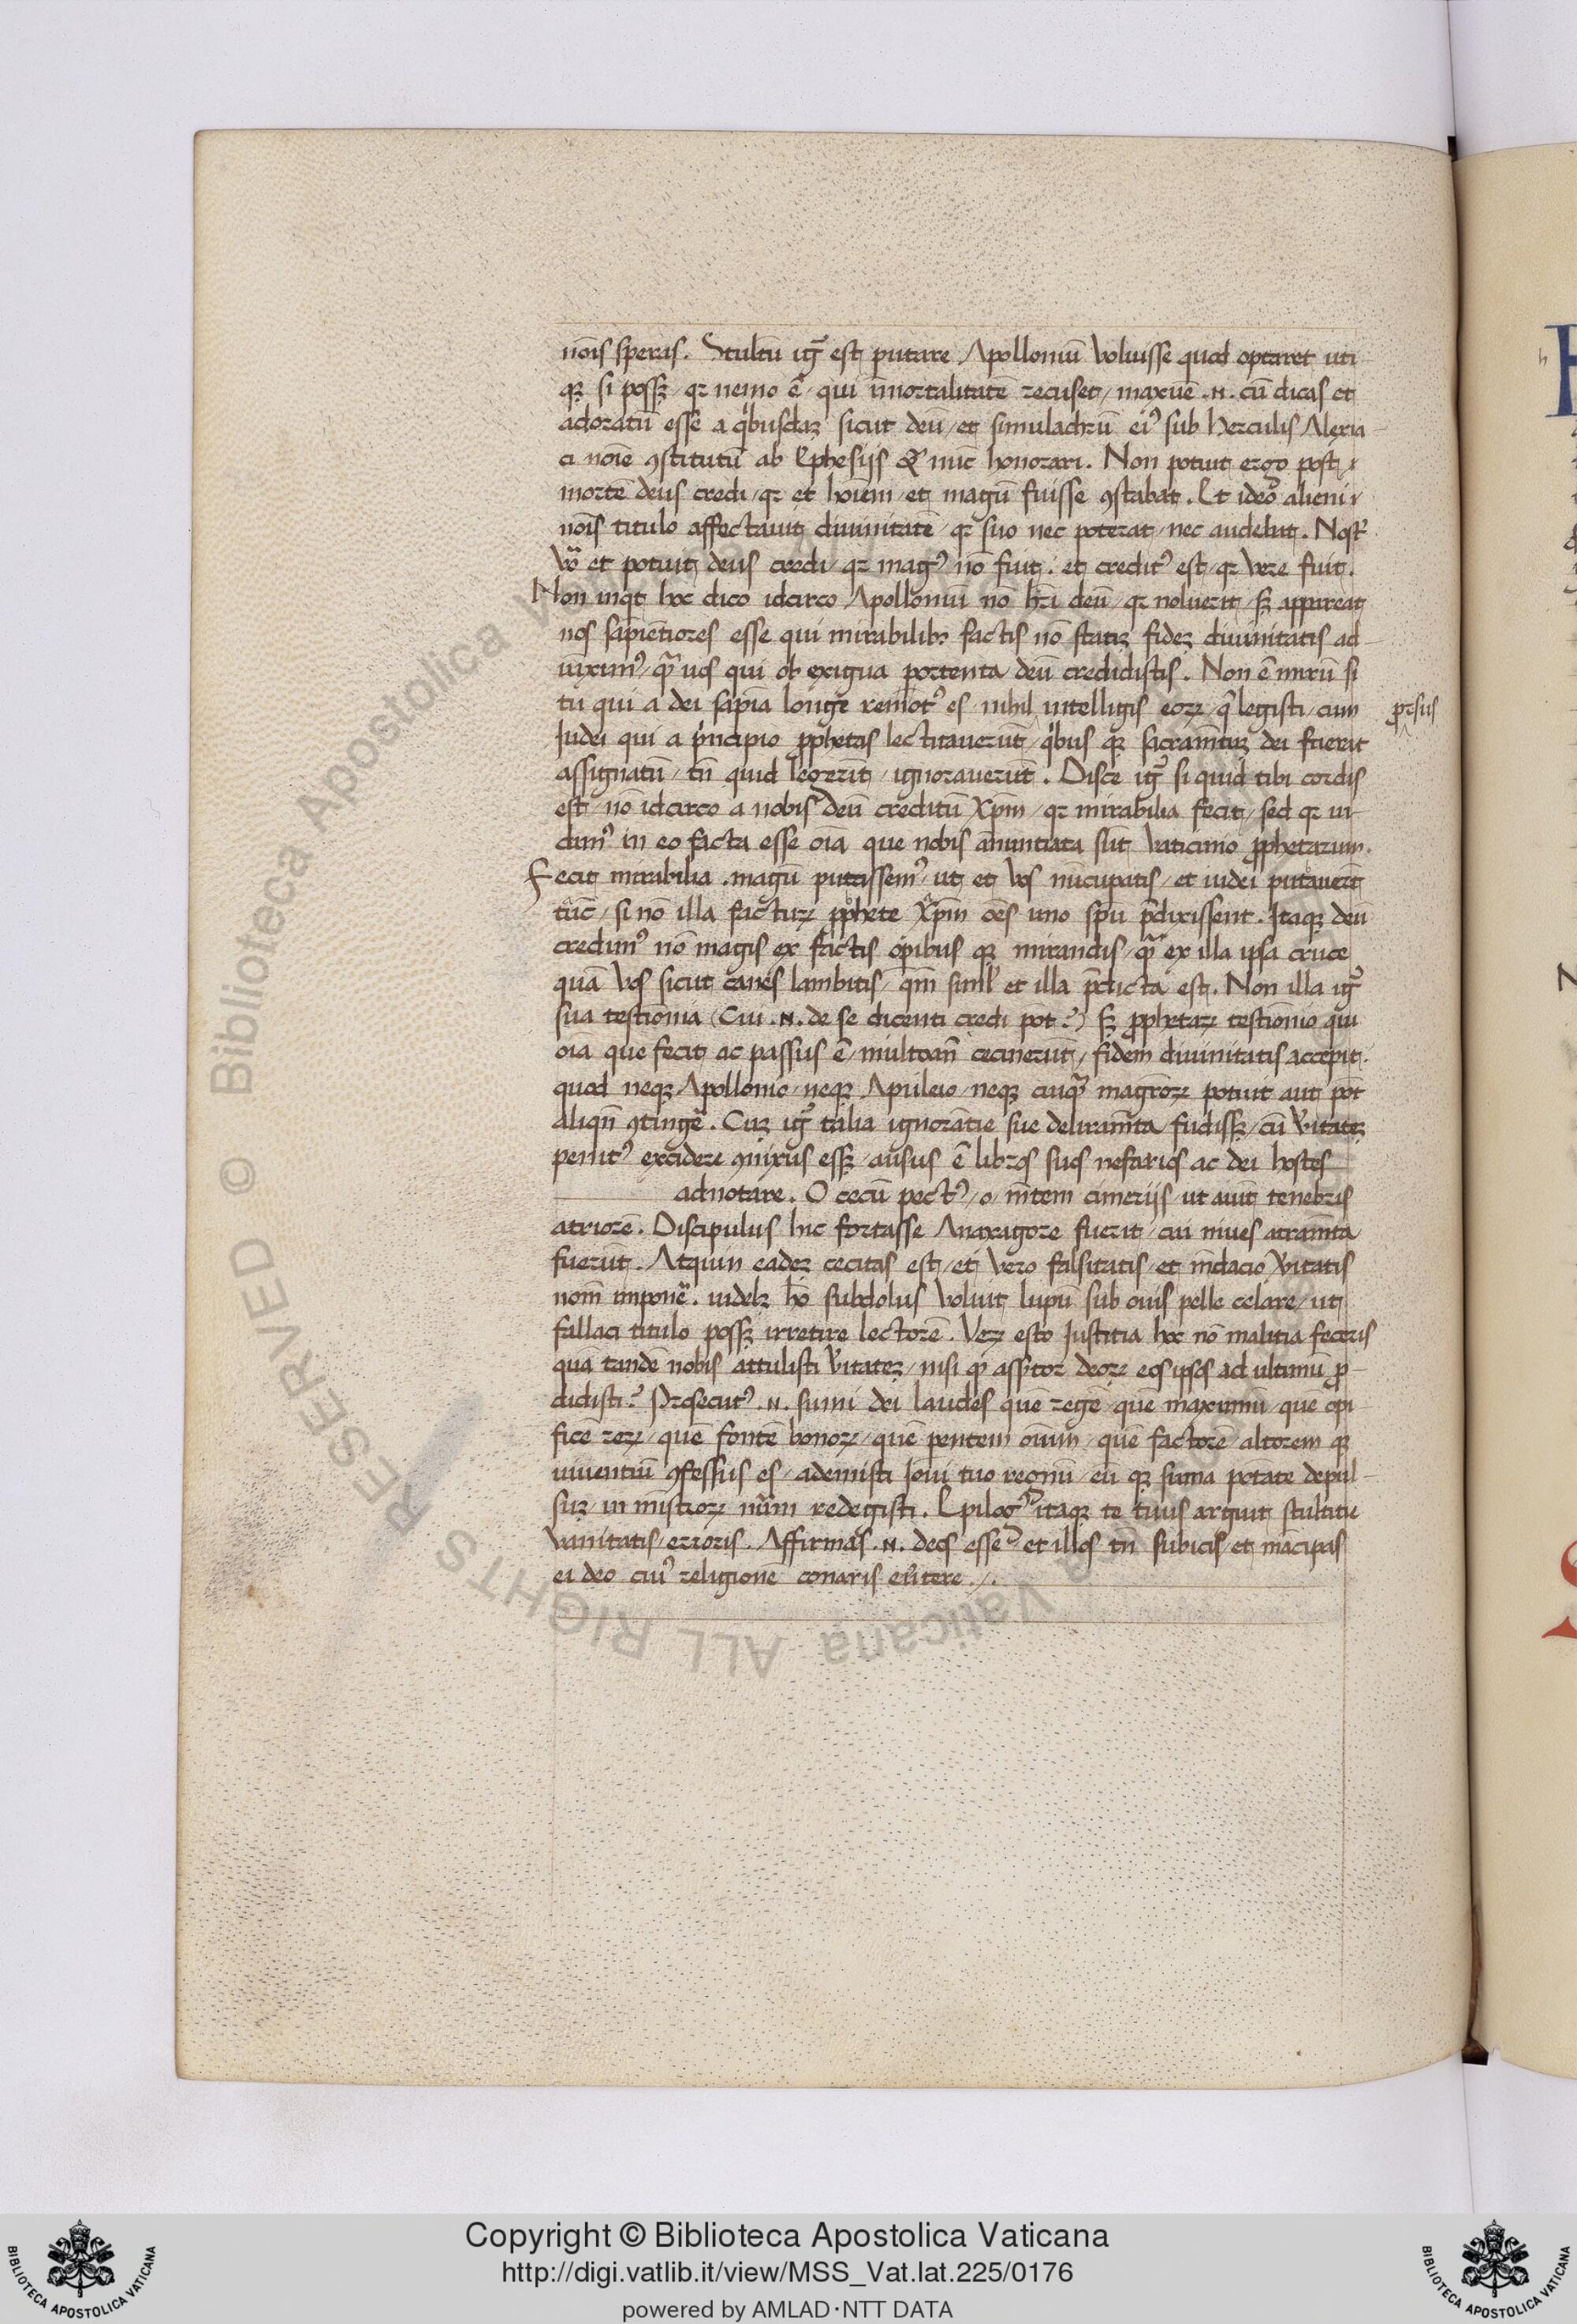 nōis speras. Stultū igr̄ est putare Apollonium voluisse quod optaret uti
qz si posset qz nemo ē qui īmortalitatē recuset / maxīe .n. cū dicas et
adoratū esse a qͥbusdaz sicut deū / et simulachrū eiꝰ sub Herculis Alexia
ci noīe ꝯstitutū ab Ephesijs & nūc honorari. Non potuit ergo post
mortē deus credi / qz et hoīem / et magū fuisse ꝯstabat. Et ideo alieni
nōis titulo affectavit divinitatē / qz suo nec poterat / nec audebat. Nost̄
vō et potuit deus credi / qz magꝰ nō fuit: et creditꝰ est / qz vere fuit.
Non inqͭ hoc dico idcirco Apollonium nō hr̄i deū / qz noluerit / sz appareat
nos sapiētiores esse qui mirabilibꝫ factis nō statiz fidez divinitatis ad
iūximꝰ / qͣ̄ uos qui ob exigua portenta deū credidistis. Non ē mirū si
tu qui a dei sapīa longe remotꝰ es / nihil intelligis eoꝝ / q̄ legisti / cum
prorsus
Iudei qui a pͥncipio ꝓphetas lectitaverūt / qͥbus qz sacramētuz dei fuerat
assignatū / tn̄ quid legerīt / ignoraverūt. Disce igr̄ si quid tibi cordis
est / nō idcirco a nobis deū creditū Xp̄m / qz mirabilia fecit / sed qz vi
dimꝰ in eo facta esse oīa que nobis annuntiata sūt vaticinio ꝓphetarum.
Fecit mirabilia . magū putassemꝰ / ut et vos nūcupatis / et iudei putaverūt
tūc / si nō illa facturū ꝓphete Xp̄m oēs uno spū p̄dixissent. Itaqz deū
credimꝰ nō magis ex factis opibus qz mirandis / qͣ̄ ex illa ipsa cruce
quā vos sicut canes lambitis / qm̄ simł et illa p̄dicta est. Non illa igr̄
sua testimōnia (Cui .n. de se dicenti credi pōt?) sz ꝓphetaꝝ testīonio qui
oīa que fecit ac passus ē / multoan̄ cecinerūt / fidem divinitatis accepit.
quod neqz Apollonio / neqz Apuleio / neqz cuiqͣ̄ magroꝝ potuit aut pōt
aliqn̄ ꝯtingē. Cuz igr̄ talia ignorātie sue deliramēta fudissz / cū v̄itatez
penitꝰ excidere ꝯnixus essz / ausus ē libros suos nefarios ac dei hostes
adnotare. O cecū pectꝰ / o mētem cimerijs / ut aiūt tenebris
atriorē. Discipulus hic fortasse Anaxagore fuerit / cui nives atramēta
fuerūt. Atquin eadez cecitas est / et vero falsitatis / et mēdacio v̄itatis
nom̄ imponē. videlz hō subdolus voluit lupū sub ovis pelle celare / ut
fallaci titulo possz irretire lectorē. Veꝝ esto Iustitia hoc nō malitia feceris
quā tandē nobis attulisti v̄itatez / nisi qͦ assertor deoꝝ eos ipsos ad ultimū ꝓ
didisti? Prosecutꝰ .n. sumi dei laudes quē regē / quē maximū / quē opi
ficē reꝝ / quē fontē bonoꝝ / quē parentem oīum / quē factorē / altorem qz
viventiū ꝯfessus es / ademisti Iovi tuo regnū / eū qz sūma potate depul
suz / in mīstroꝝ num̄m redegisti. Epilogꝰ itaqz te tuus arguit stultitie
vanitatis / erroris. Affirmas .n. deos esse / et illos tn̄ subicis / et mācipas
ei deo cuiꝰ religionē conaris ev̄tere ./.
Copyright © Biblioteca Apostolica Vaticana
http://digi.vatlib.it/view/MSS_Vat.lat.225/0176
powered by AMLAD·NTT DATA